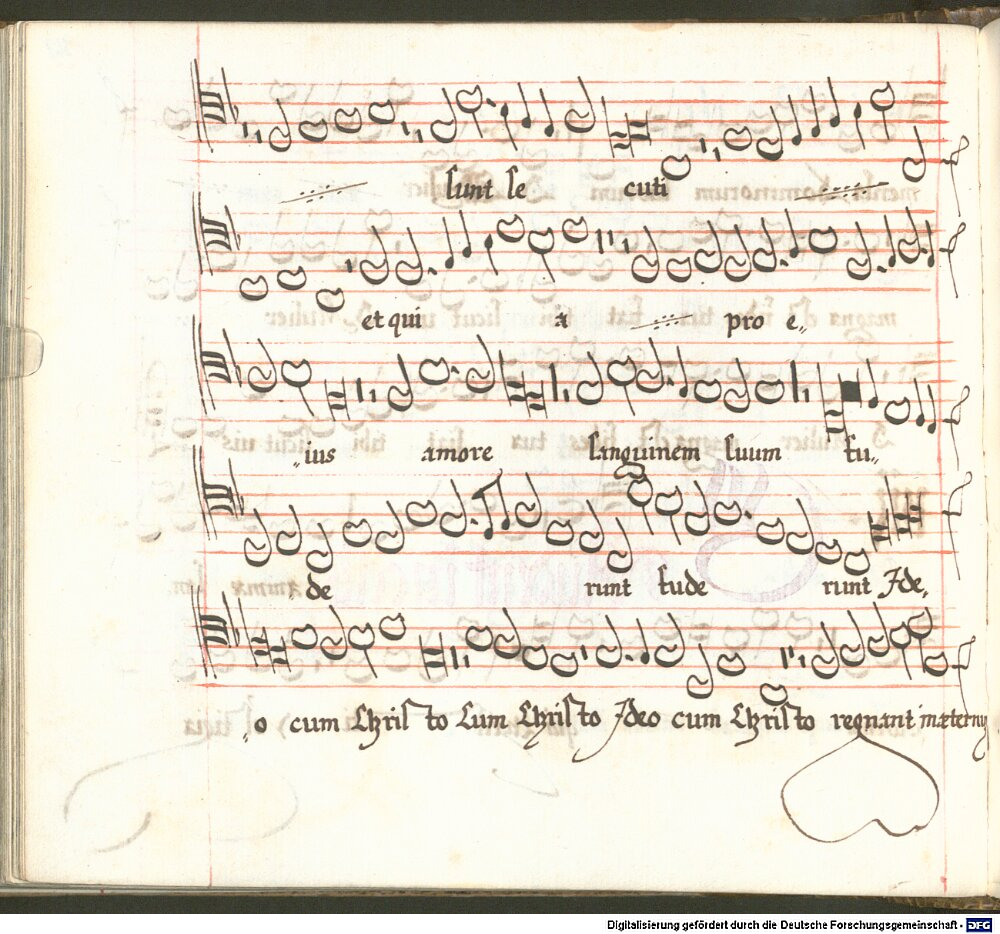 sunt se cuti
et qui a pro e„
„ius amore sanguinem suum fu„
de runt fude runt Ide„
„o cum Christo Cum Christo Ideo cum Christo regnant in æternu
Digitalisierung gefördert durch die Deutsche Forschungsgemeinschaft - DFG